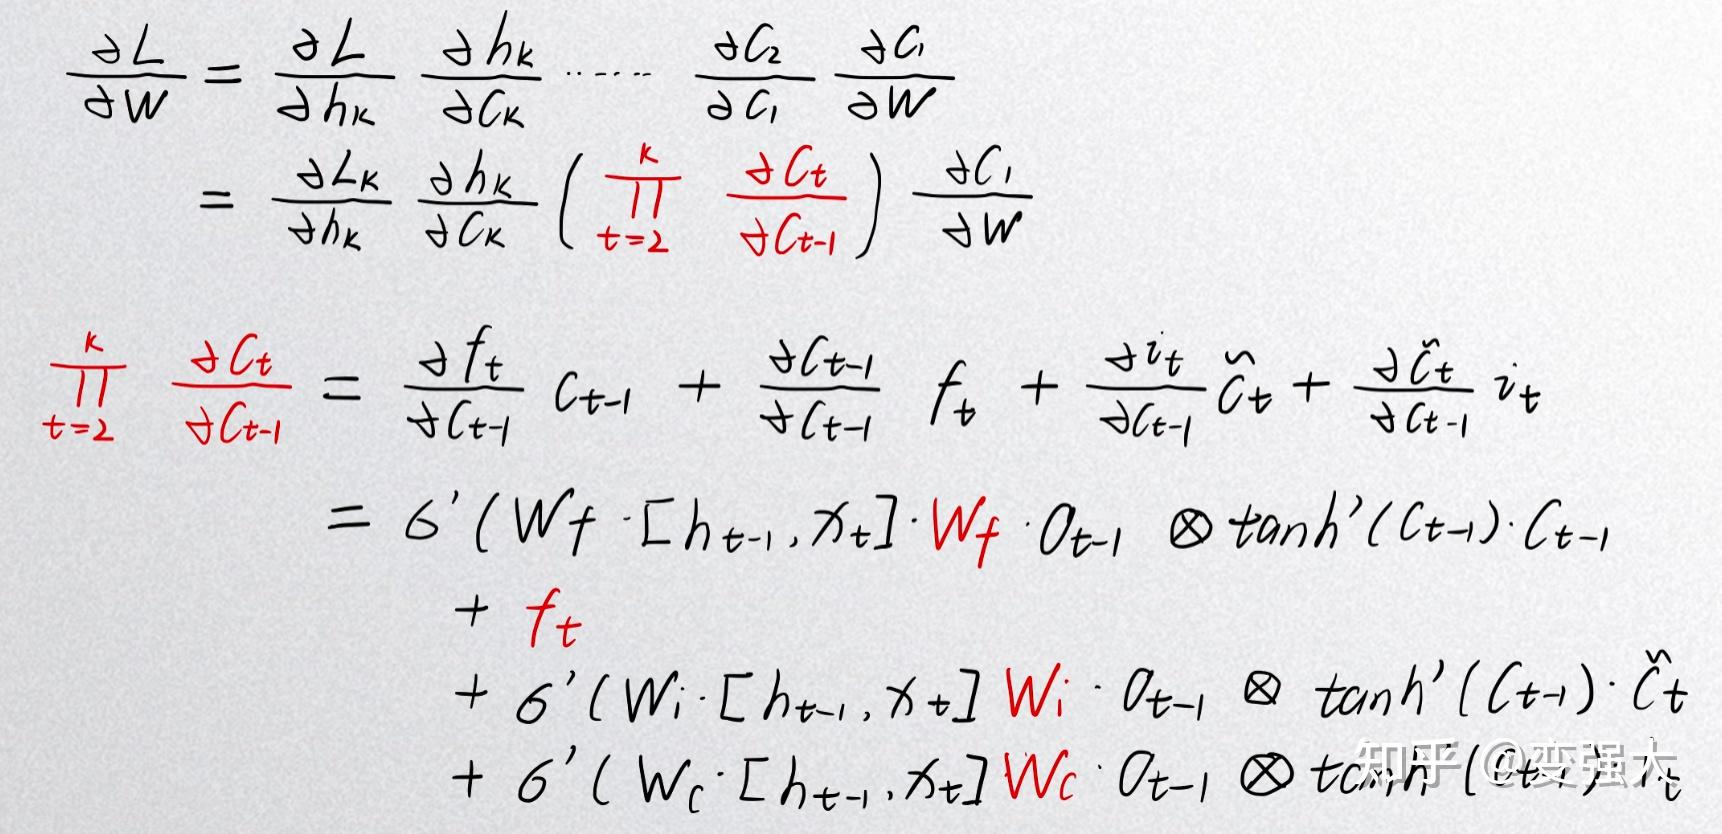 ∂L/∂W = ∂L/∂hₖ ∂hₖ/∂Cₖ ······ ∂C₂/∂C₁ ∂C₁/∂W
= ∂Lₖ/∂hₖ ∂hₖ/∂Cₖ ( ∏ₜ₌₂ᵏ ∂Cₜ/∂Cₜ₋₁ ) ∂C₁/∂W
∏ₜ₌₂ᵏ ∂Cₜ/∂Cₜ₋₁ = ∂fₜ/∂Cₜ₋₁ Cₜ₋₁ + ∂Cₜ₋₁/∂Cₜ₋₁ fₜ + ∂iₜ/∂Cₜ₋₁ C̃ₜ + ∂C̃ₜ/∂Cₜ₋₁ iₜ
= σ'(W_f · [hₜ₋₁, xₜ] · W_f · Oₜ₋₁ ⊗ tanh'(Cₜ₋₁) · Cₜ₋₁
+ fₜ
+ σ'(Wᵢ · [hₜ₋₁, xₜ] Wᵢ · Oₜ₋₁ ⊗ tanh'(Cₜ₋₁) · C̃ₜ
+ σ'(W_c · [hₜ₋₁, xₜ] W_c · Oₜ₋₁ ⊗ tanh'(Cₜ₋₁) iₜ
知乎 @变强大